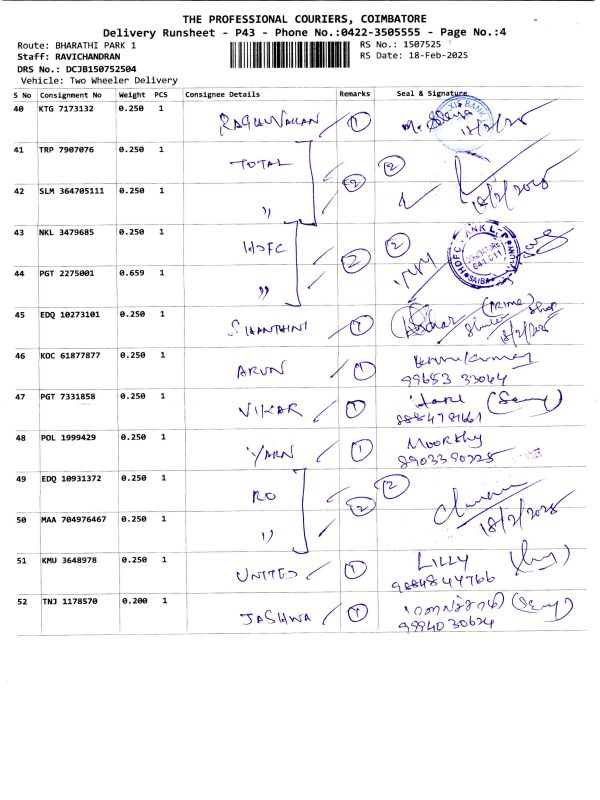 THE PROFESSIONAL COURIERS, COIMBATORE
Delivery Runsheet - P43 - Phone No.:0422-3505555 - Page No.:4
Route: BHARATHI PARK 1 RS No.: 1507525
Staff: RAVICHANDRAN RS Date: 18-Feb-2025
DRS No.: DCJB150752504
Vehicle: Two Wheeler Delivery
S No Consignment No Weight PCS Consignee Details Remarks Seal & Signature
40 KTG 7173132 0.250 1 1 18/2/25
41 TRP 7907076 0.250 1 TOTAL 2
42 SLM 364705111 0.250 1 " 2 18/2/2025
43 NKL 3479685 0.250 1 HDFC 2
44 PGT 2275001 0.659 1 " 2
45 EDQ 10273101 0.250 1 SHANTHINI 1 (PRIME) 18/2/2025
46 KOC 61877877 0.250 1 ARUN 1 Arunkumar
99653 33044
47 PGT 7331858 0.250 1 VIKAR 1
48 POL 1999429 0.250 1 YARN 1 Moorthy
8903390225
49 EDQ 10931372 0.250 1 RO 2
50 MAA 704976467 0.250 1 " 2 18/2/2025
51 KMU 3648978 0.250 1 UNITED 1 LILLY
9884844766
52 TNJ 1178570 0.200 1 JASHWA 1
9994030624